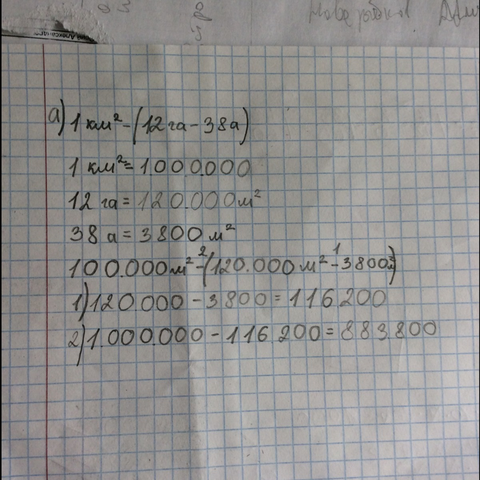 а) 1 км² - (12 га - 38 а)
1 км² = 1.000.000
12 га = 120.000 м²
38 а = 3800 м²
100.000 м² -² (120.000 м² -¹ 3800 м²)
1) 120.000 - 3800 = 116 200
2) 1.000.000 - 116 200 = 883 800